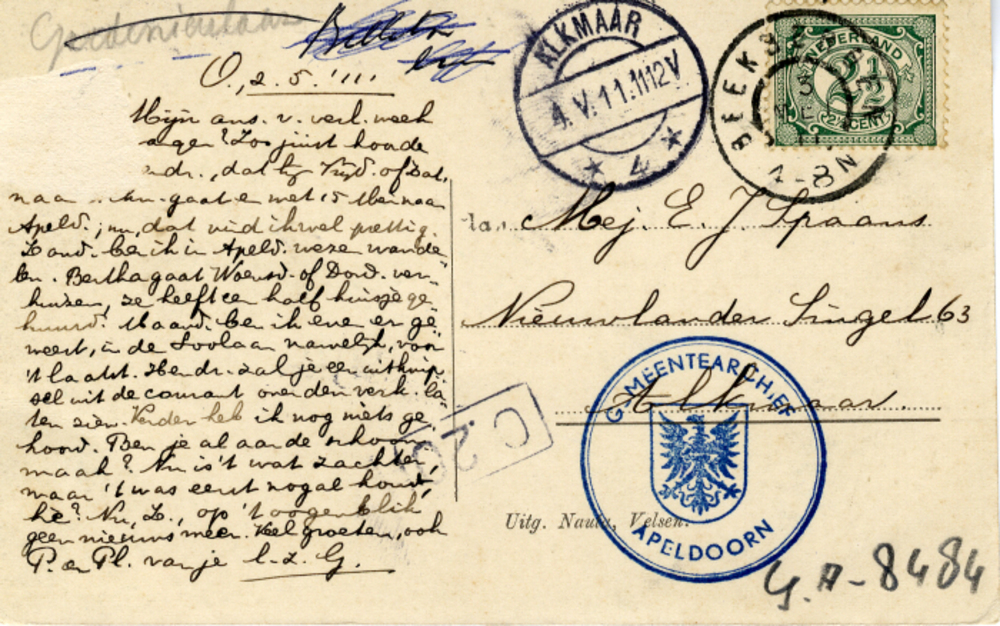 O., 2.5.'11
Mijn ans. v. verl. week
? Zoo juist hoorde
dr., dat Vrijd. of Zat.
naar gaat en met 15 Mei naar
Apeld.; nu, dat vind ik wel prettig.
Zond. ben ik in Apeld. weze wande-
len. Bertha gaat Woensd. of Dond. ver-
huizen, ze heeft een half huisje ge-
huurd. Maand. ben ik even er ge-
weest, in de Loolaan namelijk, voor
't laatst. Hendr. zal je een uitknip-
sel uit de courant over den verk. la-
ten zien. Verder heb ik nog niets ge-
hoord. Ben je al aan de schoon-
maak? Nu is 't wat zachter,
maar 't was eerst nogal koud,
hè? Nu, L., op 't oogenblik
geen nieuws meer. Veel groeten, ook
P. en Pl. van je l. z. G.
ALKMAAR
4.V.11.1112V
4
NEDERLAND
2½
2½ CENT
4-8N
Mej. E. J. Spaans
Nieuwlander Singel 63
Alkmaar.
GEMEENTEARCHIEF
APELDOORN
Uitg. Nauta, Velsen.
G.A-8484